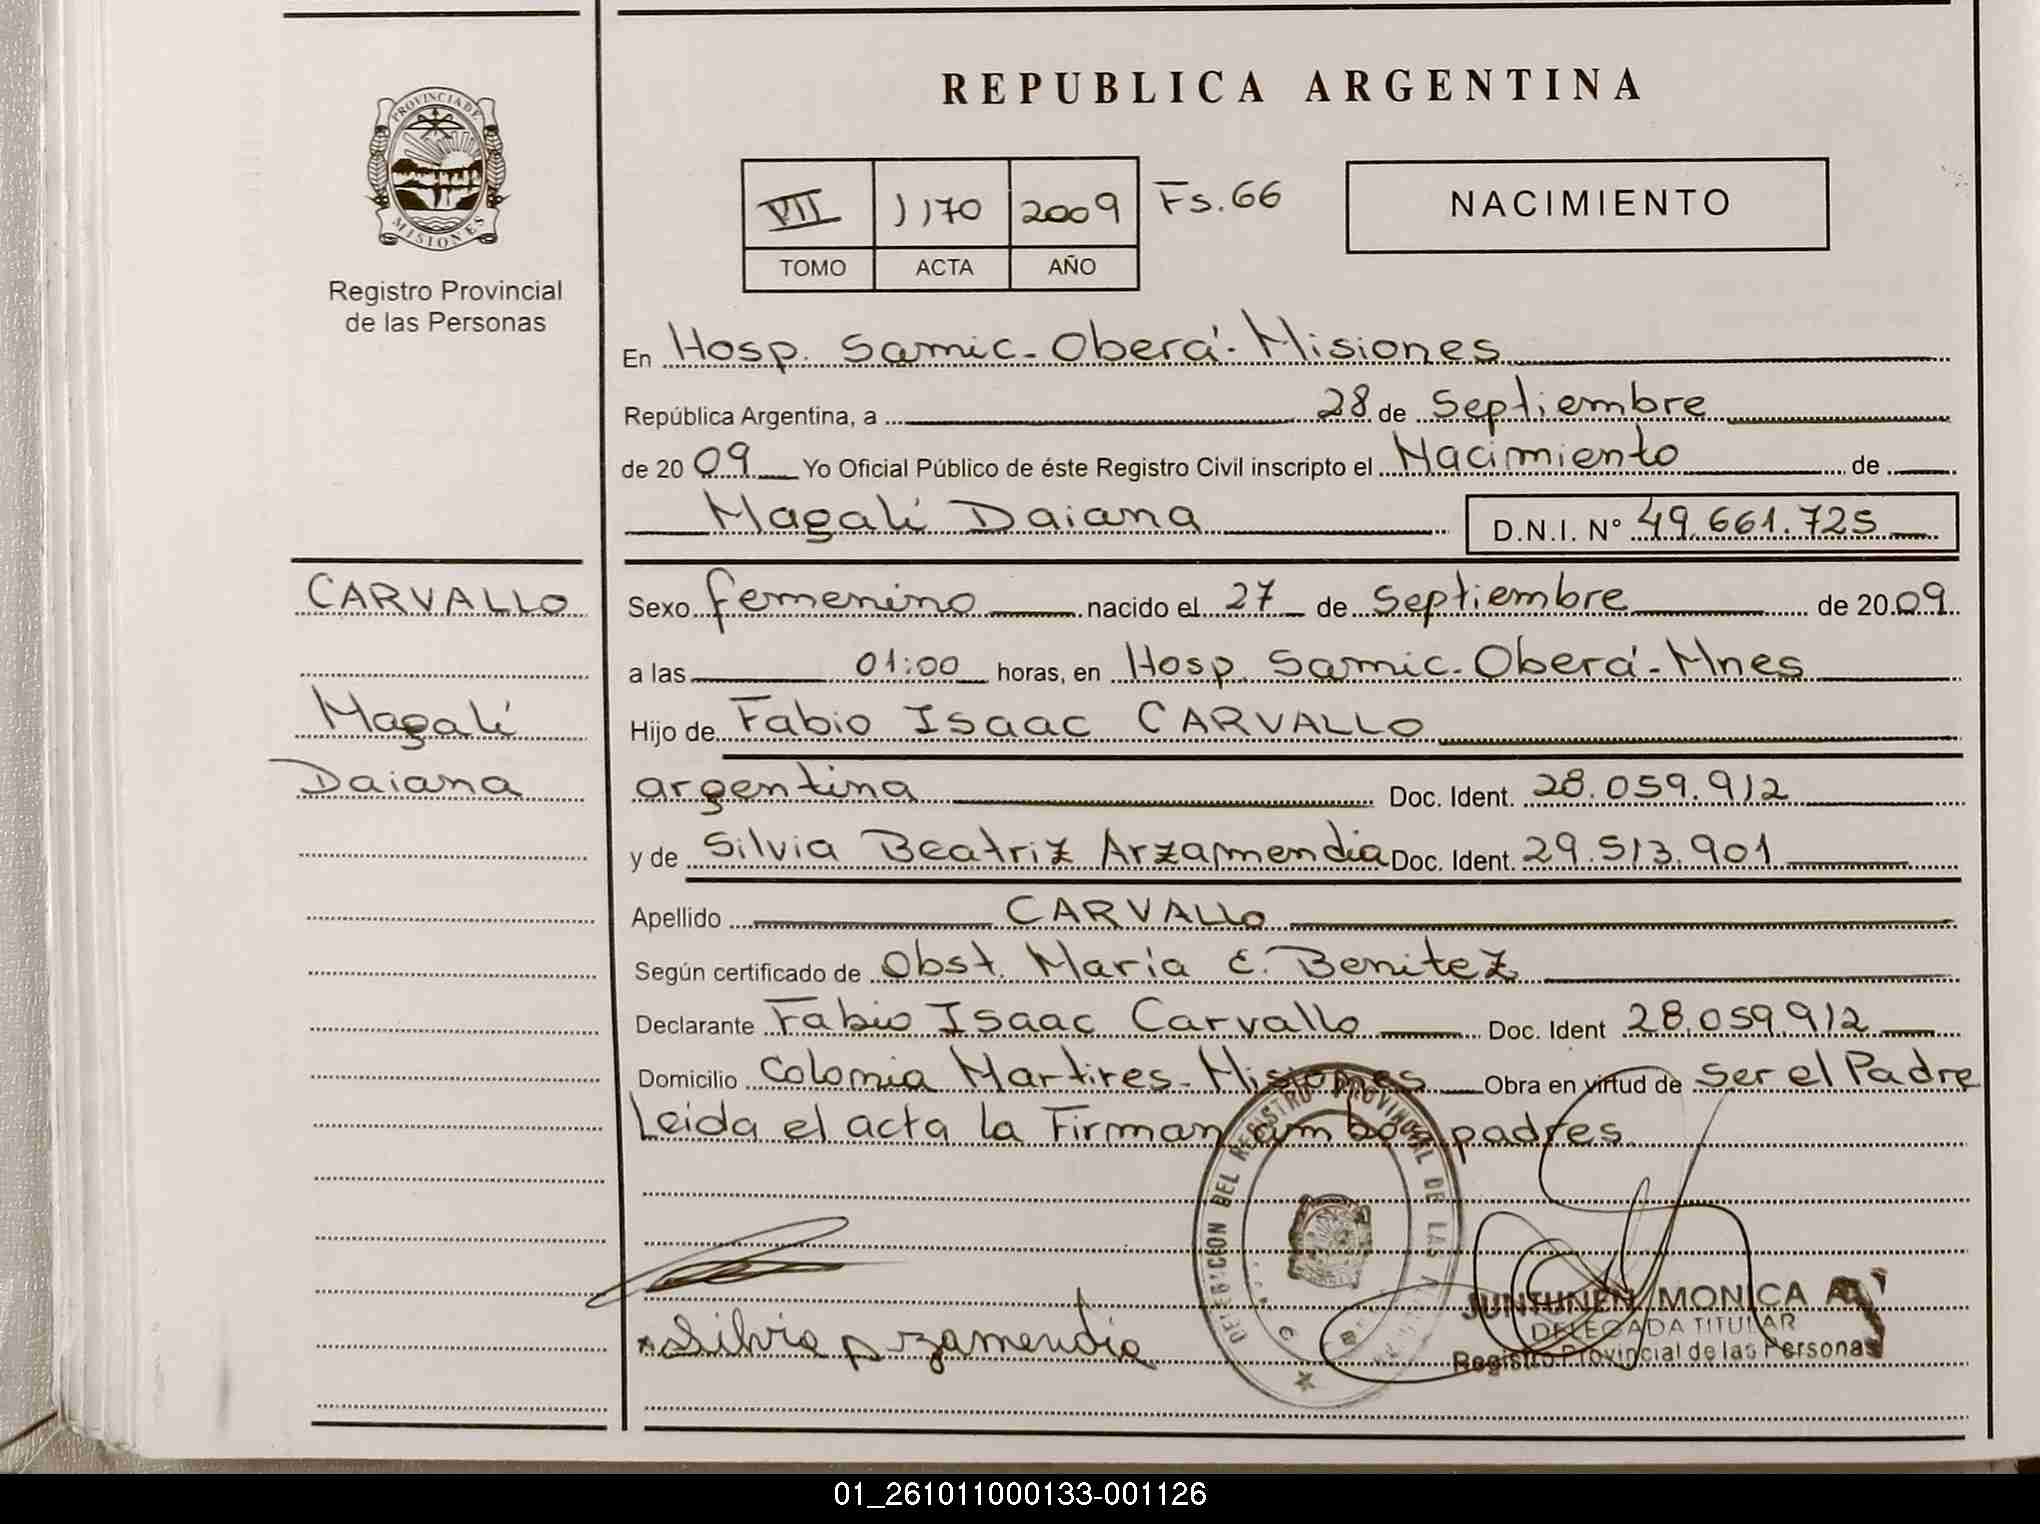 REPUBLICA ARGENTINA
PROVINCIA DE MISIONES
Registro Provincial
de las Personas
VII 1170 2009 Fs. 66
TOMO ACTA AÑO
NACIMIENTO
En Hosp. Samic - Oberá - Misiones
República Argentina, a 28 de Septiembre
de 2009 Yo Oficial Público de éste Registro Civil inscripto el Nacimiento de
Magalí Daiana D.N.I. N° 49.661.725
CARVALLO
Magalí
Daiana
Sexo femenino nacido el 27 de Septiembre de 2009
a las 01:00 horas, en Hosp. Samic - Oberá - Mnes
Hijo de Fabio Isaac CARVALLO
argentina Doc. Ident. 28.059.912
y de Silvia Beatriz Arzamendia Doc. Ident. 29.513.901
Apellido CARVALLO
Según certificado de Obst. María E. Benitez
Declarante Fabio Isaac Carvallo Doc. Ident 28.059.912
Domicilio Colonia Martires - Misiones Obra en virtud de ser el Padre
Leida el acta la Firman ambos padres
DELEGACION DEL REGISTRO PROVINCIAL DE LAS
Silvia Arzamendia
JUNTUNEN MONICA
DELEGADA TITULAR
Registro Provincial de las Personas
01_261011000133-001126